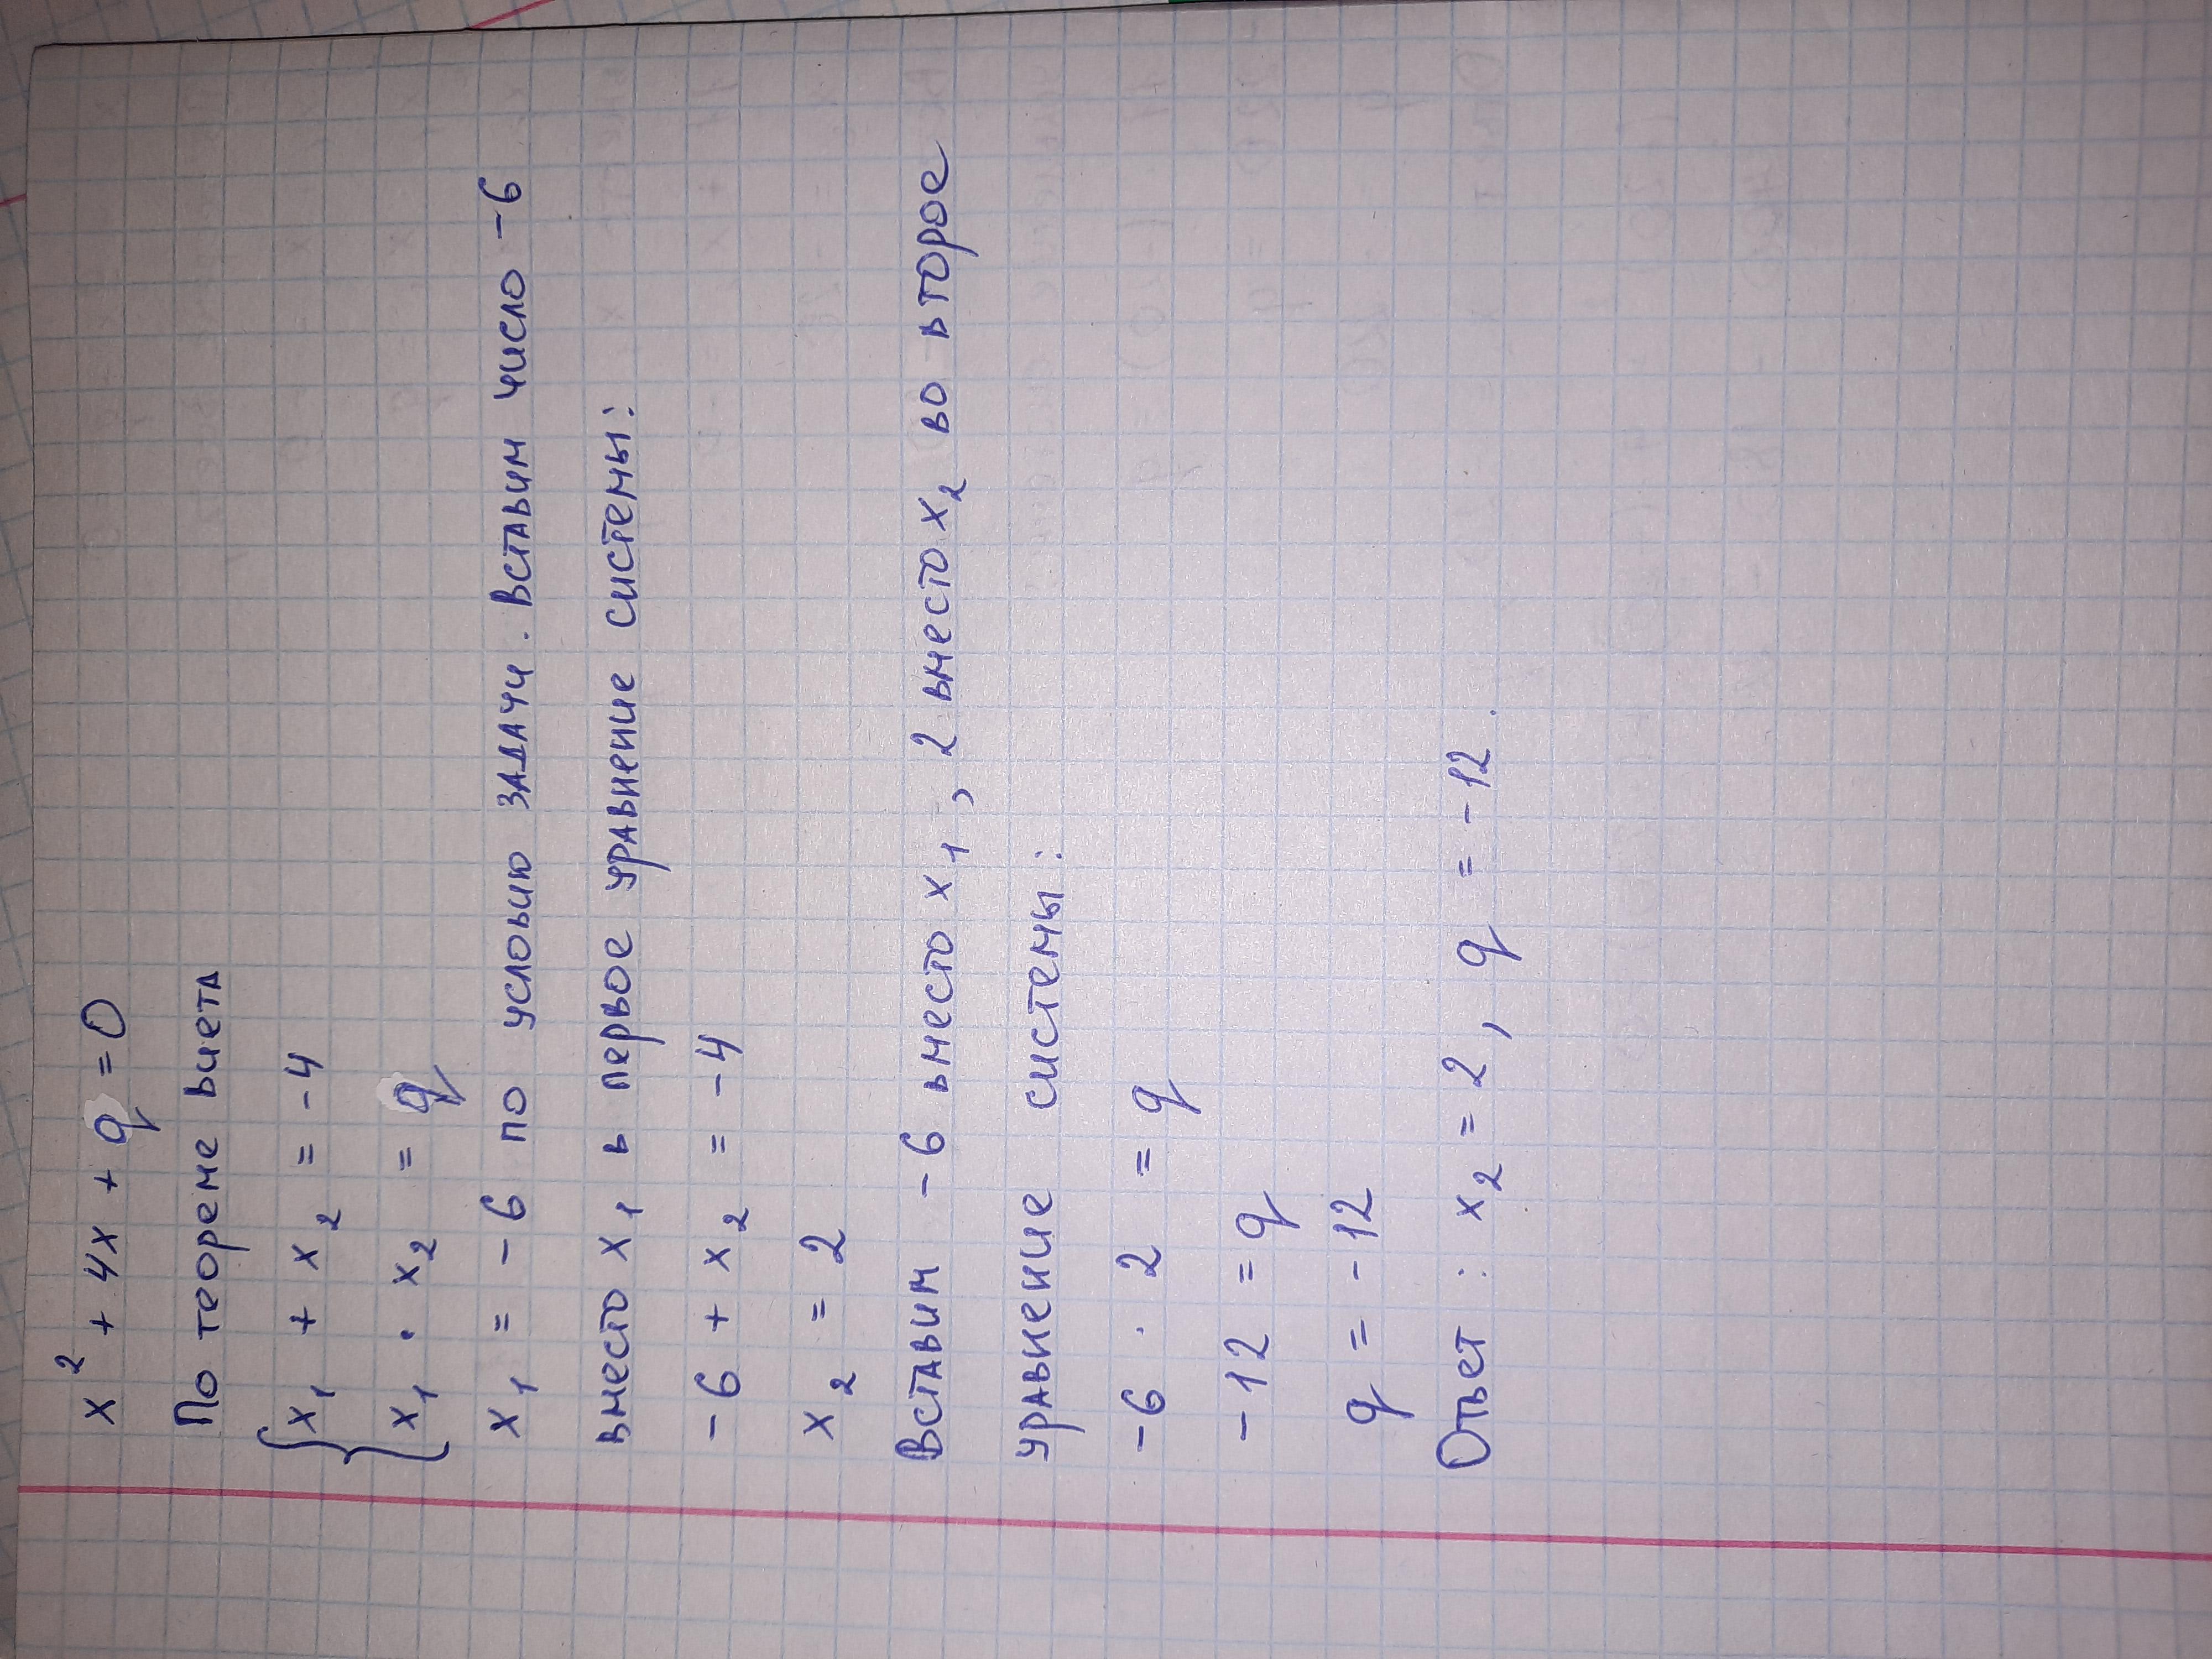 x² + 4x + q = 0
По теореме Виета
{ x₁ + x₂ = -4
{ x₁ · x₂ = q
x₁ = -6 по условию задачи. Вставим число -6
вместо x₁ в первое уравнение системы:
-6 + x₂ = -4
x₂ = 2
Вставим -6 вместо x₁, 2 вместо x₂ во второе
уравнение системы:
-6 · 2 = q
-12 = q
q = -12
Ответ: x₂ = 2, q = -12.